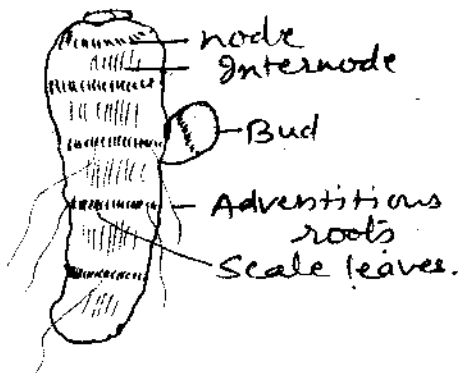 node
Internode
Bud
Adventitious
roots
Scale leaves.